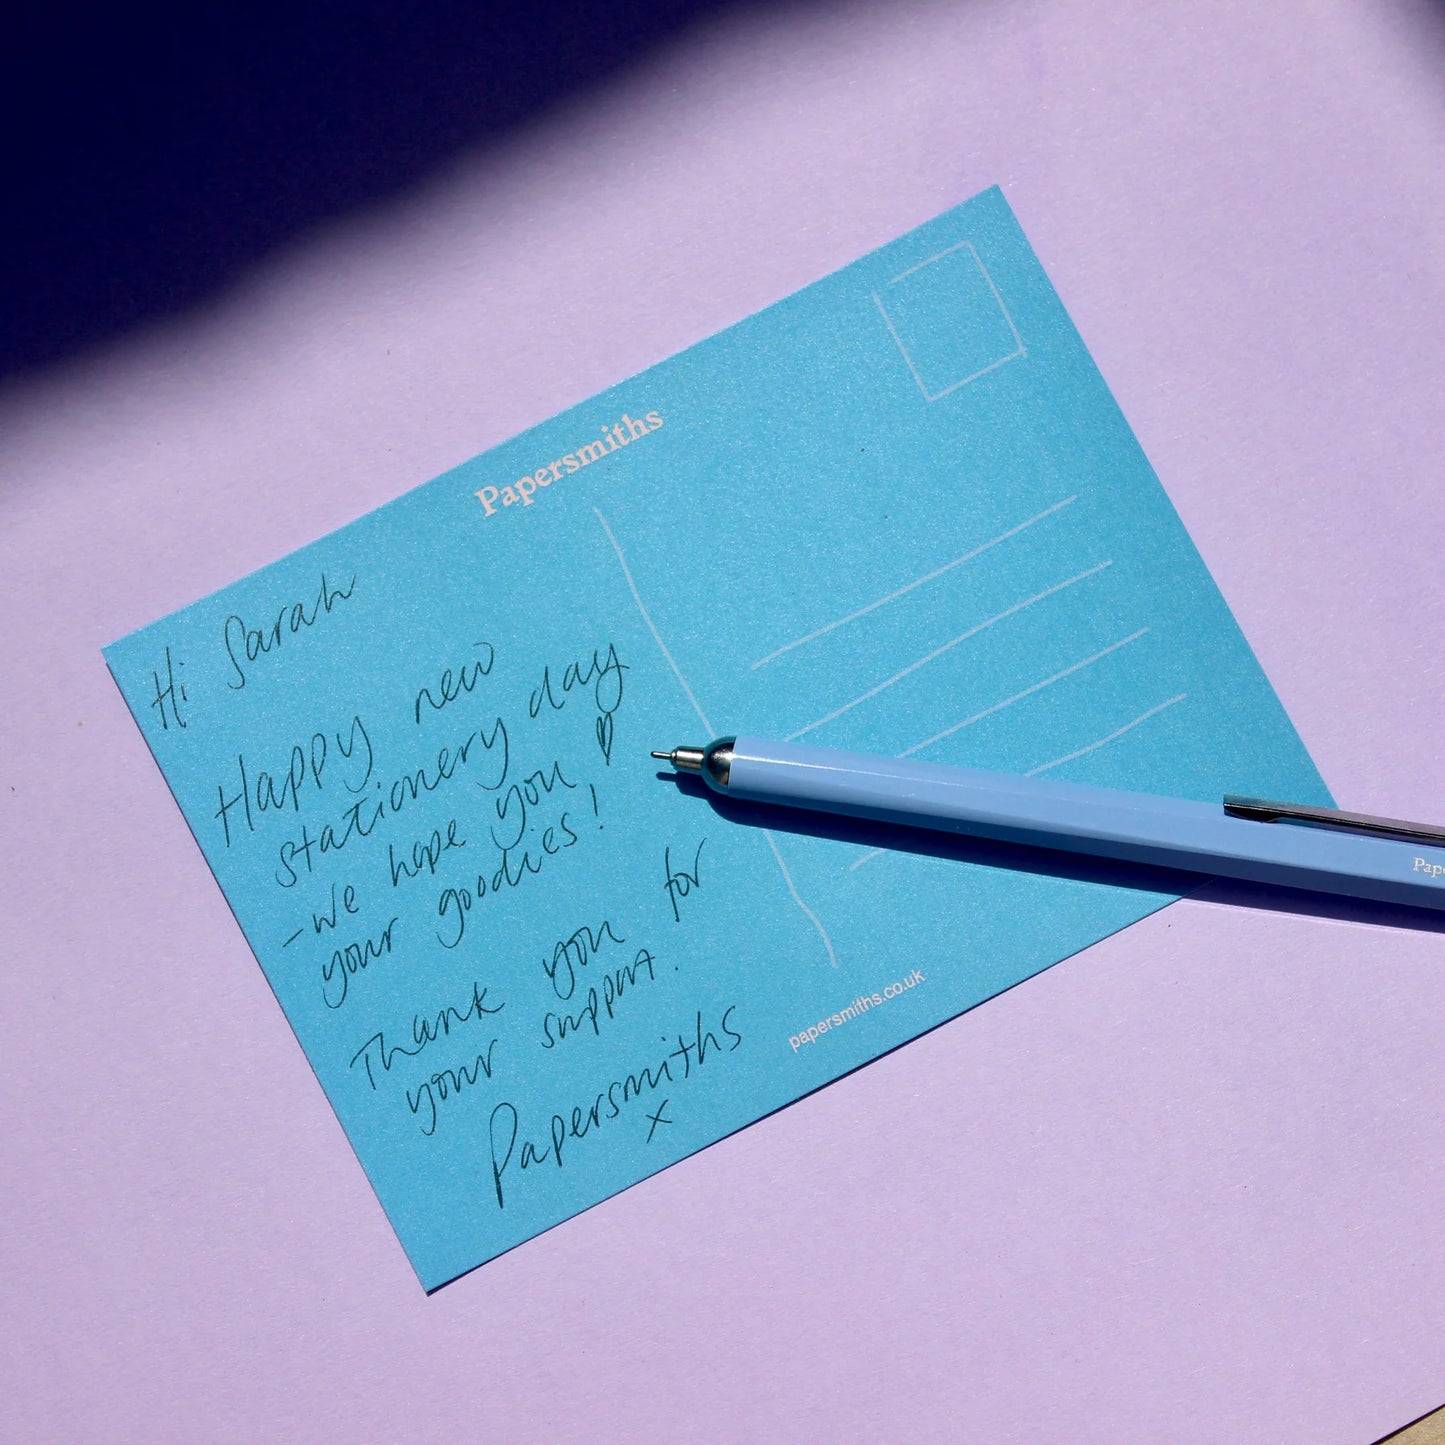 Papersmiths
Hi Sarah
Happy new
stationery day
- we hope you ♥
your goodies!
Thank you for
your support.
Papersmiths
x
papersmiths.co.uk